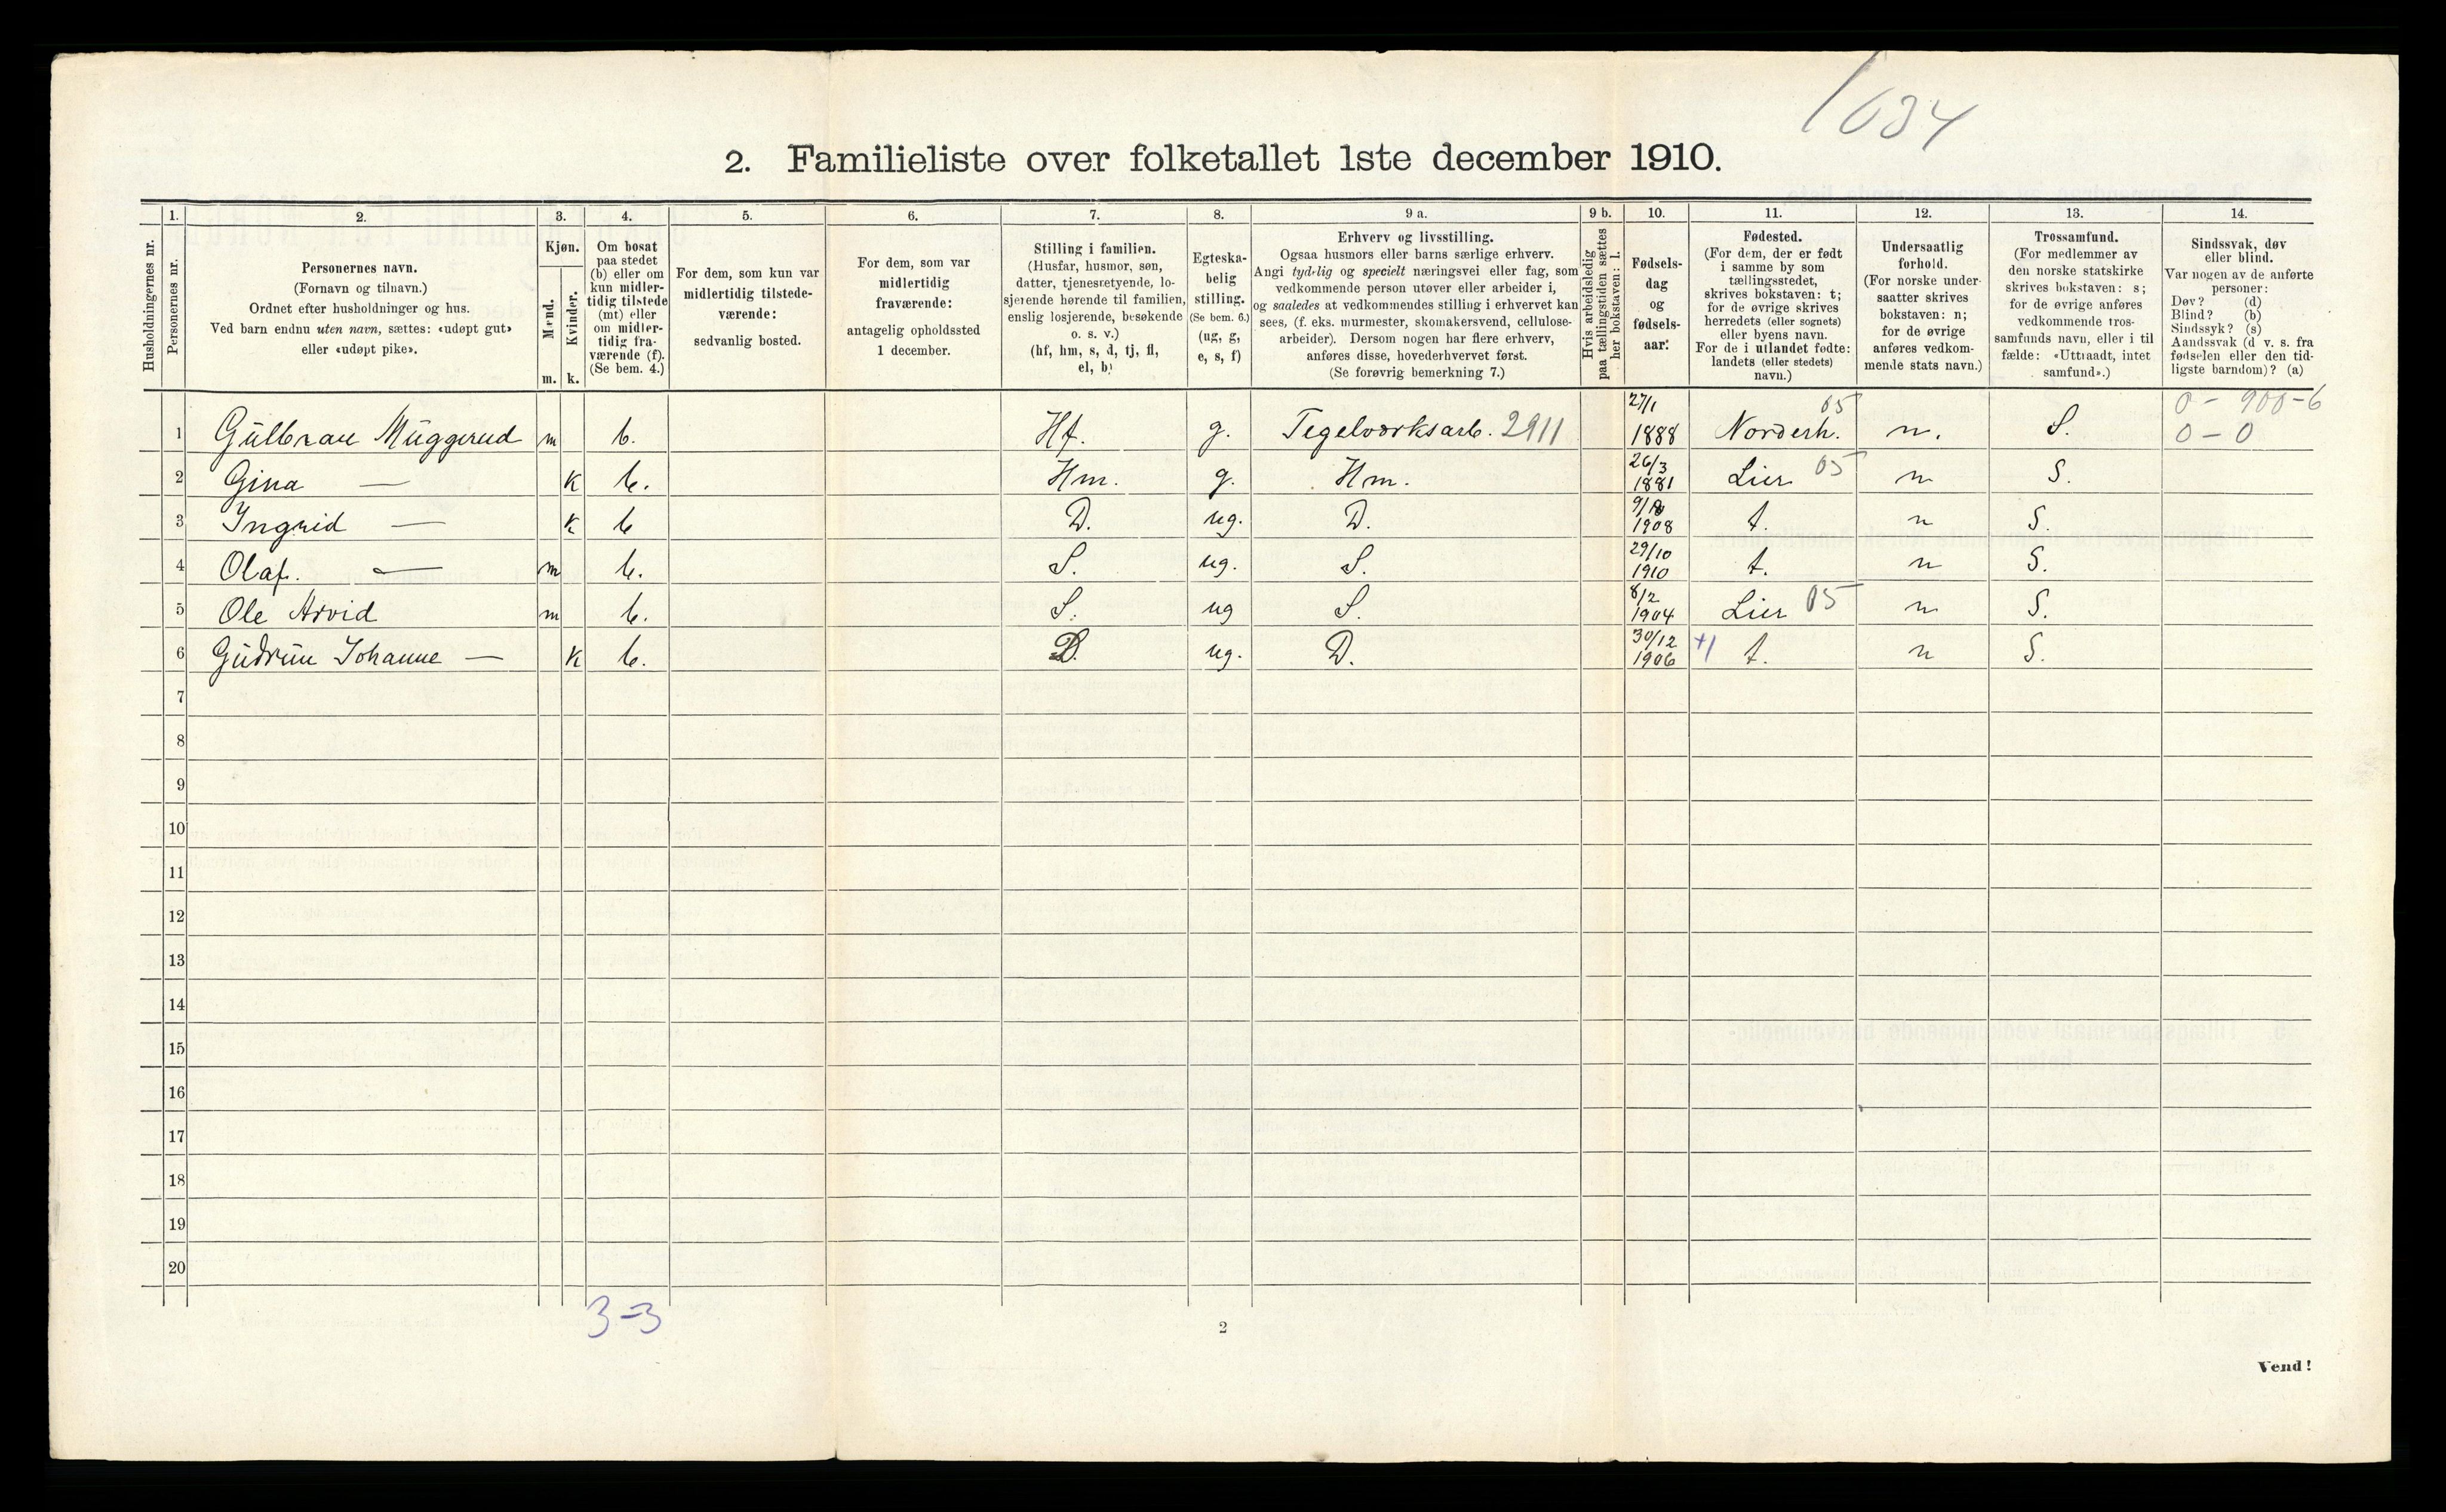 1634
2. Familieliste over folketallet 1ste december 1910.
Husholdningernes nr.
1.
Personernes nr.
2.
Personernes navn.
(Fornavn og tilnavn.)
Ordnet efter husholdninger og hus.
Ved barn endnu uten navn, sættes: «udøpt gut»
eller «udøpt pike».
3.
Kjøn.
Mænd.
Kvinder.
m. k.
4.
Om bosat
paa stedet
(b) eller om
kun midler-
tidig tilstede
(mt) eller
om midler-
tidig fra-
værende (f).
(Se bem. 4.)
5.
For dem, som kun var
midlertidig tilstede-
værende:
sedvanlig bosted.
6.
For dem, som var
midlertidig
fraværende:
antagelig opholdssted
1 december.
7.
Stilling i familien.
(Husfar, husmor, søn,
datter, tjenestetyende, lo-
sjerende hørende til familien,
enslig losjerende, besøkende
o. s. v.)
(hf, hm, s, d, tj, fl,
el, b)
8.
Egteska-
belig
stilling.
(Se bem. 6.)
(ug, g,
e, s, f)
9 a.
Erhverv og livsstilling.
Ogsaa husmors eller barns særlige erhverv.
Angi tydelig og specielt næringsvei eller fag, som
vedkommende person utøver eller arbeider i,
og saaledes at vedkommendes stilling i erhvervet kan
sees, (f. eks. murmester, skomakersvend, cellulose-
arbeider). Dersom nogen har flere erhverv,
anføres disse, hovederhvervet først.
(Se forøvrig bemerkning 7.)
9 b.
Hvis arbeidsledig
paa tællingstiden sættes
her bokstaven: l.
10.
Fødsels-
dag
og
fødsels-
aar.
11.
Fødested.
(For dem, der er født
i samme by som
tællingsstedet,
skrives bokstaven: t;
for de øvrige skrives
herredets (eller sognets)
eller byens navn.
For de i utlandet fødte:
landets (eller stedets)
navn.)
12.
Undersaatlig
forhold.
(For norske under-
saatter skrives
bokstaven: n;
for de øvrige
anføres vedkom-
mende stats navn.)
13.
Trossamfund.
(For medlemmer av
den norske statskirke
skrives bokstaven: s;
for de øvrige anføres
vedkommende tros-
samfunds navn, eller i til
fælde: «Uttraadt, intet
samfund».)
14.
Sindssvak, døv
eller blind.
Var nogen av de anførte
personer:
Døv? (d)
Blind? (b)
Sindssyk? (s)
Aandssvak (d v. s. fra
fødselen eller den tid-
ligste barndom)? (a)
1 Gulbran Muggerud m b. Hf. g. Tegelværksarb. 2911 27/1 1888 Norderh. 05 n. S. 0 - 900-6 0 - 0
2 Gina — k b. Hm. g. Hm. 26/3 1881 Lier 05 n S.
3 Ingrid — k b D. ug. D. 1908 t. n S.
4 Olaf. — m b. S. ug. S. 29/10 1910 t. n S.
5 Ole Arvid m b. S. ug S. 8/2 1904 Lier 05 n S.
6 Gudrun Johanne — k b. D. ug. D. 30/12 1906 +1 t. n S.
7
8
9
10
11
12
13
14
15
16
17
18
19
20
3-3
2
Vend!